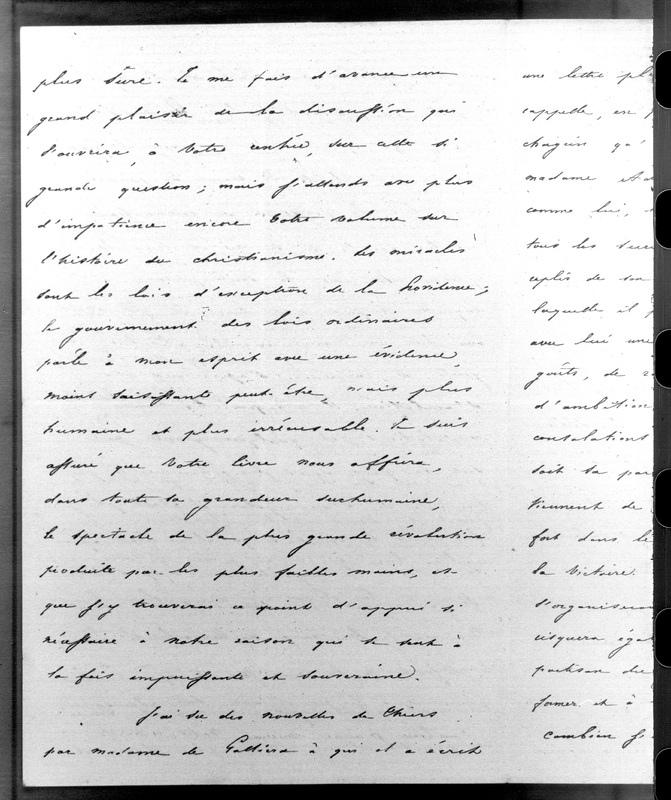 plus sûre. Je me fais d'avance un
grand plaisir de la discussion qui
s'ouvrira, à votre rentrée, sur cette si
grande question; mais j'attends avec plus
d'impatience encore votre volume sur
l'histoire du christianisme. Les miracles
sont les lois d'exception de la Providence;
le gouvernement des lois ordinaires
parle à mon esprit avec une évidence,
moins saisissante peut-être, mais plus
humaine et plus irrécusable. Je suis
assuré que votre livre nous offrira,
dans toute sa grandeur surhumaine,
le spectacle de la plus grande révolution
produite par les plus faibles mains, et
que j'y trouverai ce point d'appui si
nécessaire à notre raison qui se sent à
la fois impuissante et souveraine.
J'ai su des nouvelles de Thiers
par madame de Galliera à qui il a écrit
une lettre
rappelle, en
chagrin qu'
madame
comme lui,
tous les
de son
laquelle il
avec lui une
goûts, de
d'ambition
consolations
soit sa
viennent de
fort dans le
la victoire.
s'organiseront
risquera
partisan de
former, et à
combien